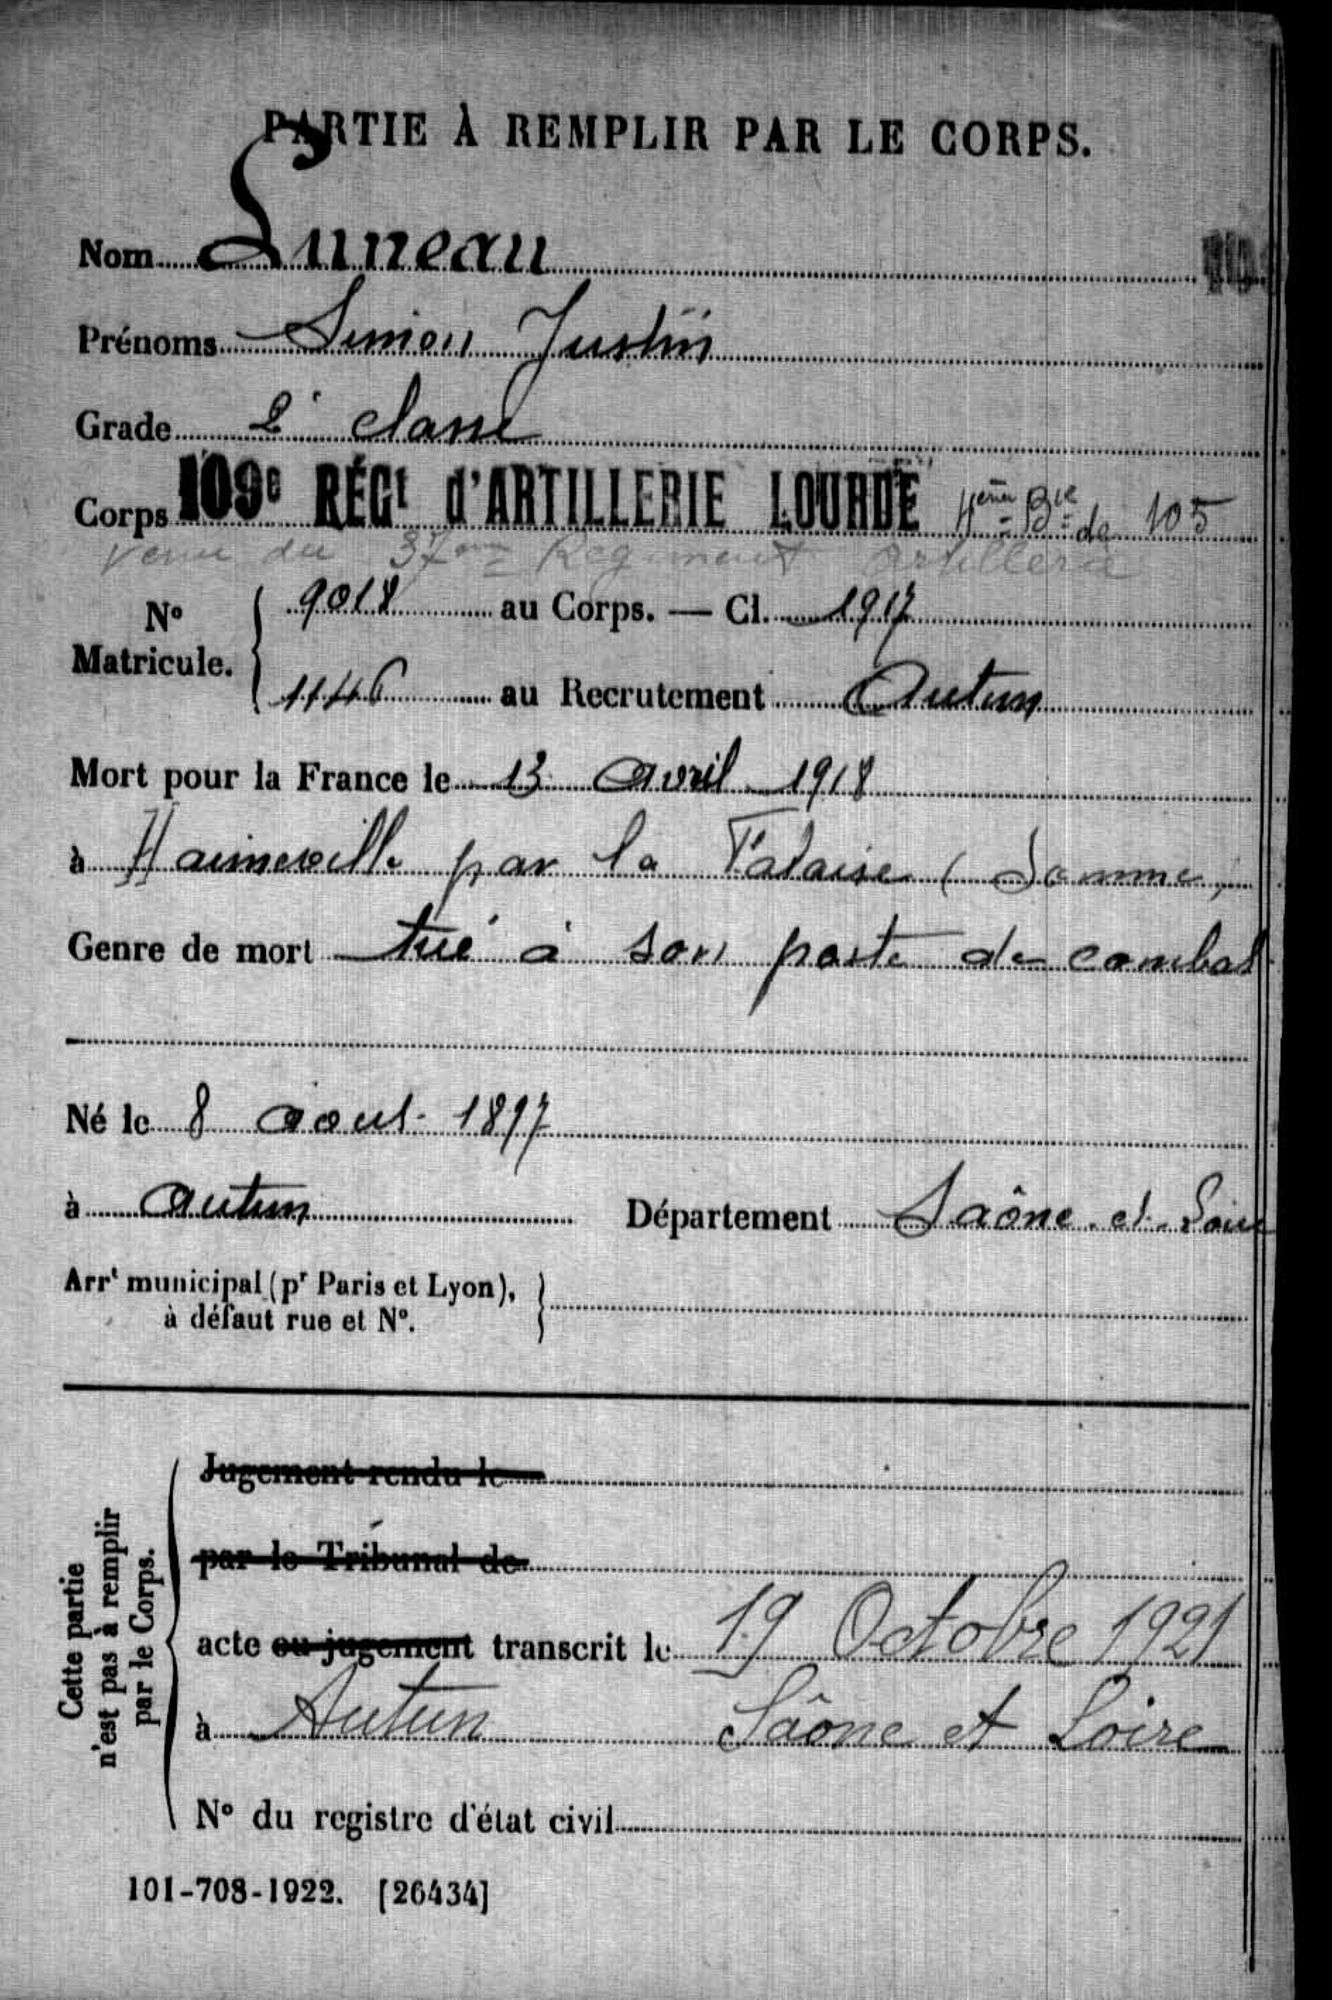 PARTIE À REMPLIR PAR LE CORPS.
Nom Luneau
Prénoms Simon Justin
Grade 2e classe
Corps 109e RÉGt d'ARTILLERIE LOURDE 4ème Bie de 105
Venu du 37ème Régiment Artillerie
No Matricule. 9018 au Corps. — Cl. 1917
1146 au Recrutement Autun
Mort pour la France le 13 avril 1918
à Haineville par la Falaise (Somme)
Genre de mort tué à son poste de combat
Né le 8 août 1897
à Autun Département Saône-et-Loire
Arrt municipal (pr Paris et Lyon),
à défaut rue et No.
Cette partie
n'est pas à remplir
par le Corps.
Jugement rendu le
par le Tribunal de
acte ou jugement transcrit le 19 Octobre 1921
à Autun Saône et Loire
No du registre d'état civil
101-708-1922. [26434]